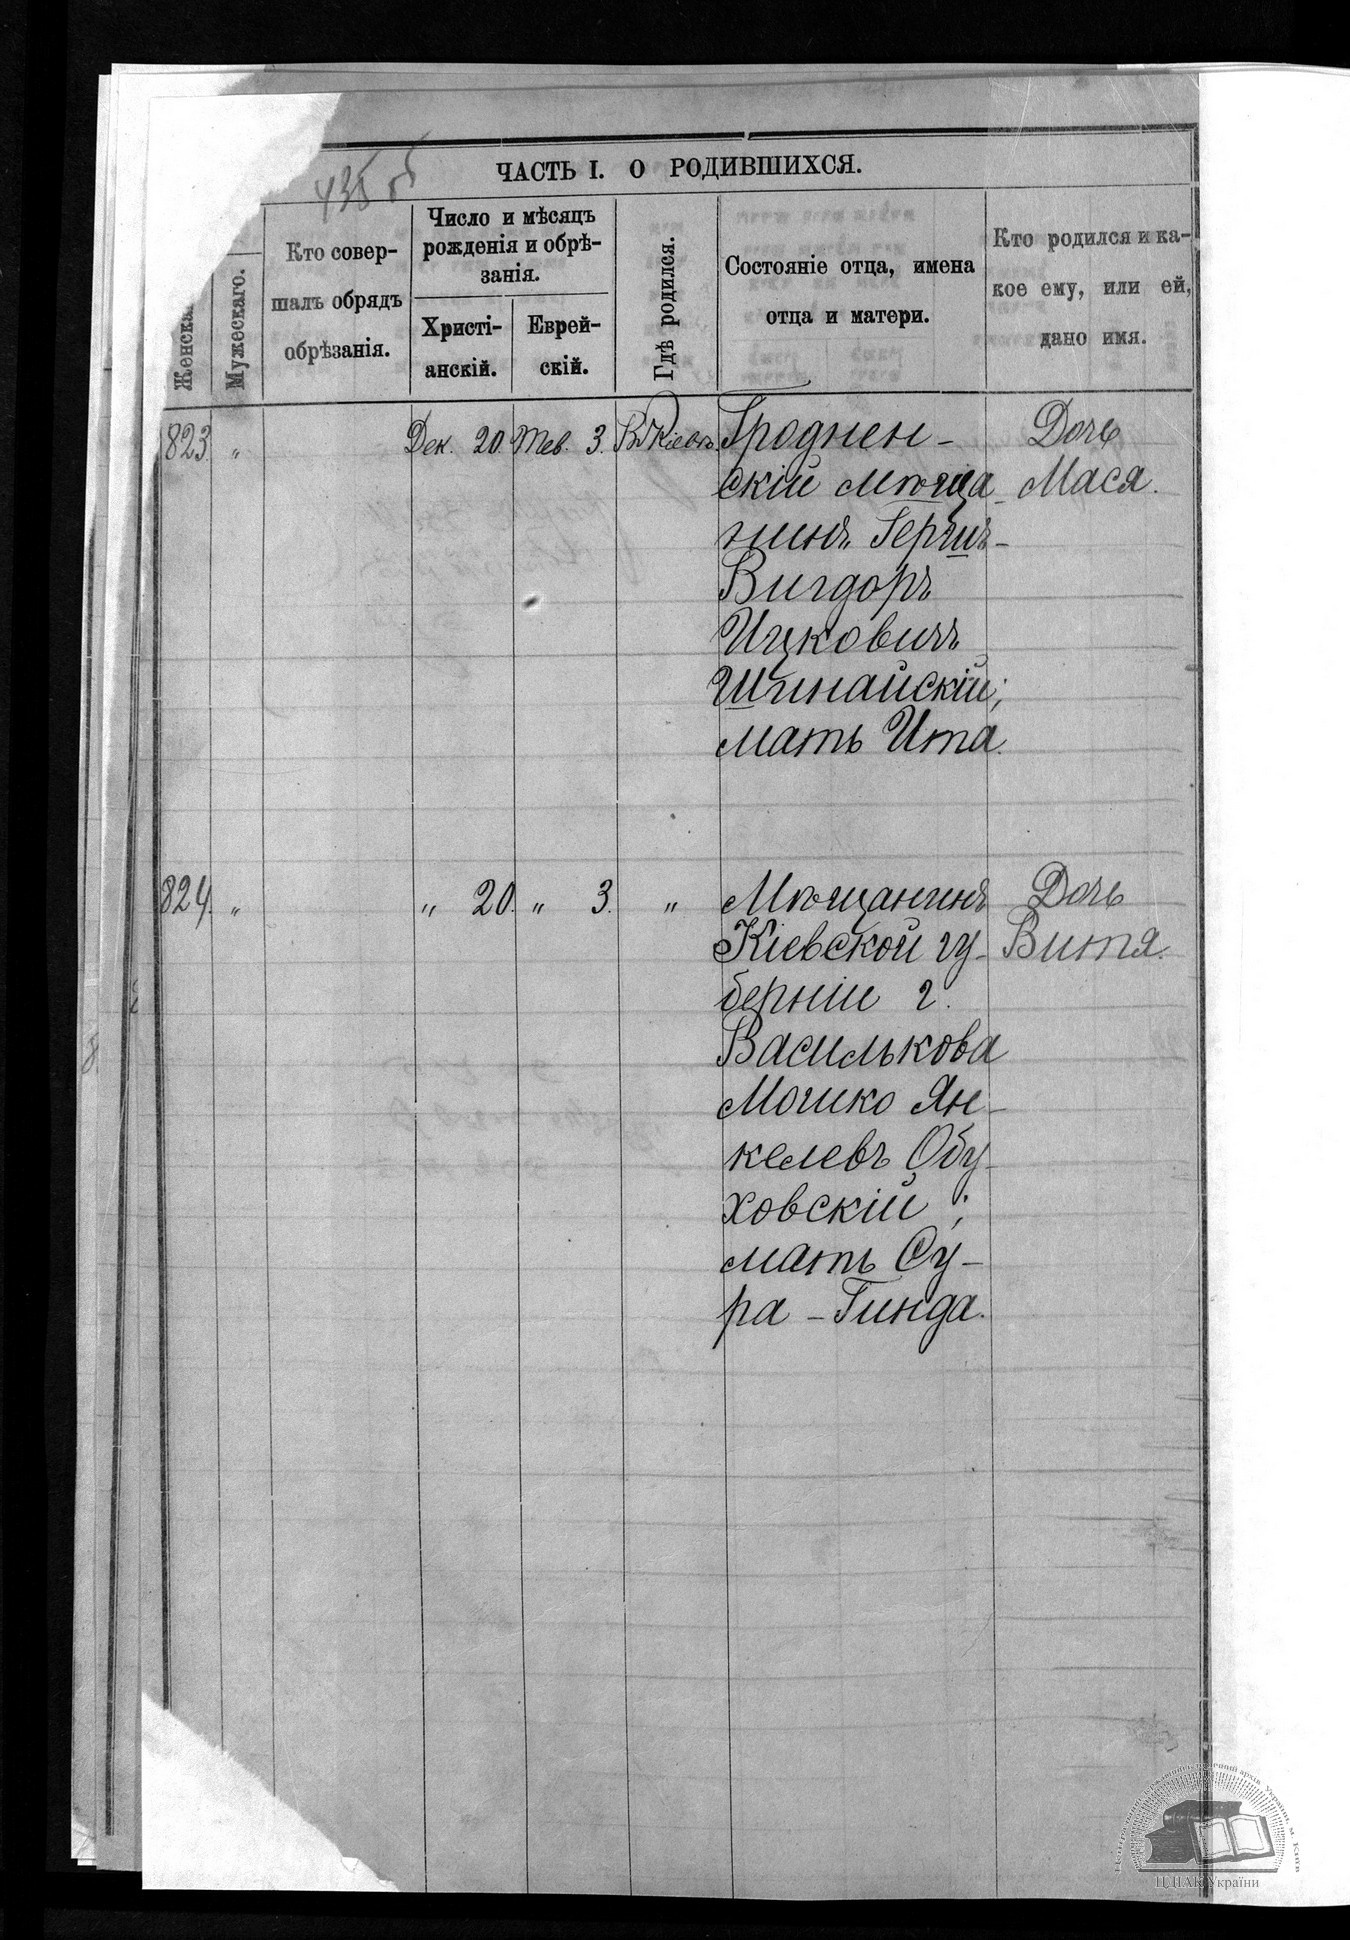 435 об
ЧАСТЬ I. О РОДИВШИХСЯ.
Женска
Мужескаго.
Кто совер-
шалъ обрядъ
обрѣзанія.
Число и мѣсяцъ
рожденія и обрѣ-
занія.
Христі-
анскій.
Еврей-
скій.
Гдѣ родился.
Состояніе отца, имена
отца и матери.
Кто родился и ка-
кое ему, или ей,
дано имя.
823. " Дек. 20. Тев. 3. Въ Кіевѣ. Гроднен- Дочь
скій мѣща- Мася.
нинъ Гершъ-
Вигдоръ
Ицковичъ
Шинайскій;
мать Ита.
824. " " 20. " 3. " Мѣщанинъ Дочь
Кіевской гу- Витя.
берніи г.
Василькова
Мошко Ян-
келевъ Обу-
ховскій;
мать Су-
ра-Гинда.
ЦДІАК України